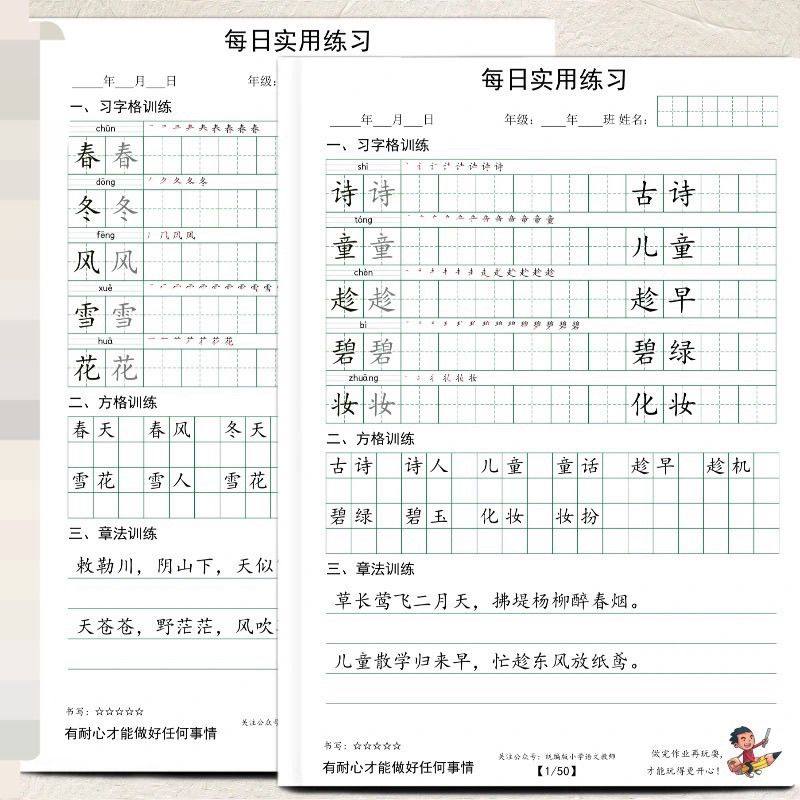 每日实用练习
____年___月___日 年级:
一、习字格训练
chūn
春 春
dōng
冬 冬
fēng
风 风
xuě
雪 雪
huā
花 花
二、方格训练
春天 春风 冬天
雪花 雪人 雪花
三、章法训练
敕勒川，阴山下，天似
天苍苍，野茫茫，风吹
书写：☆☆☆☆☆
关注公众号
有耐心才能做好任何事情
每日实用练习
____年___月___日 年级:____年___班 姓名:
一、习字格训练
shī
诗 诗 古诗
tóng
童 童 儿童
chèn
趁 趁 趁早
bì
碧 碧 碧绿
zhuāng
妆 妆 化妆
二、方格训练
古诗 诗人 儿童 童话 趁早 趁机
碧绿 碧玉 化妆 妆扮
三、章法训练
草长莺飞二月天，拂堤杨柳醉春烟。
儿童散学归来早，忙趁东风放纸鸢。
书写：☆☆☆☆☆
关注公众号：统编版小学语文教师
做完作业再玩耍，
有耐心才能做好任何事情
【1/50】
才能玩得更开心！